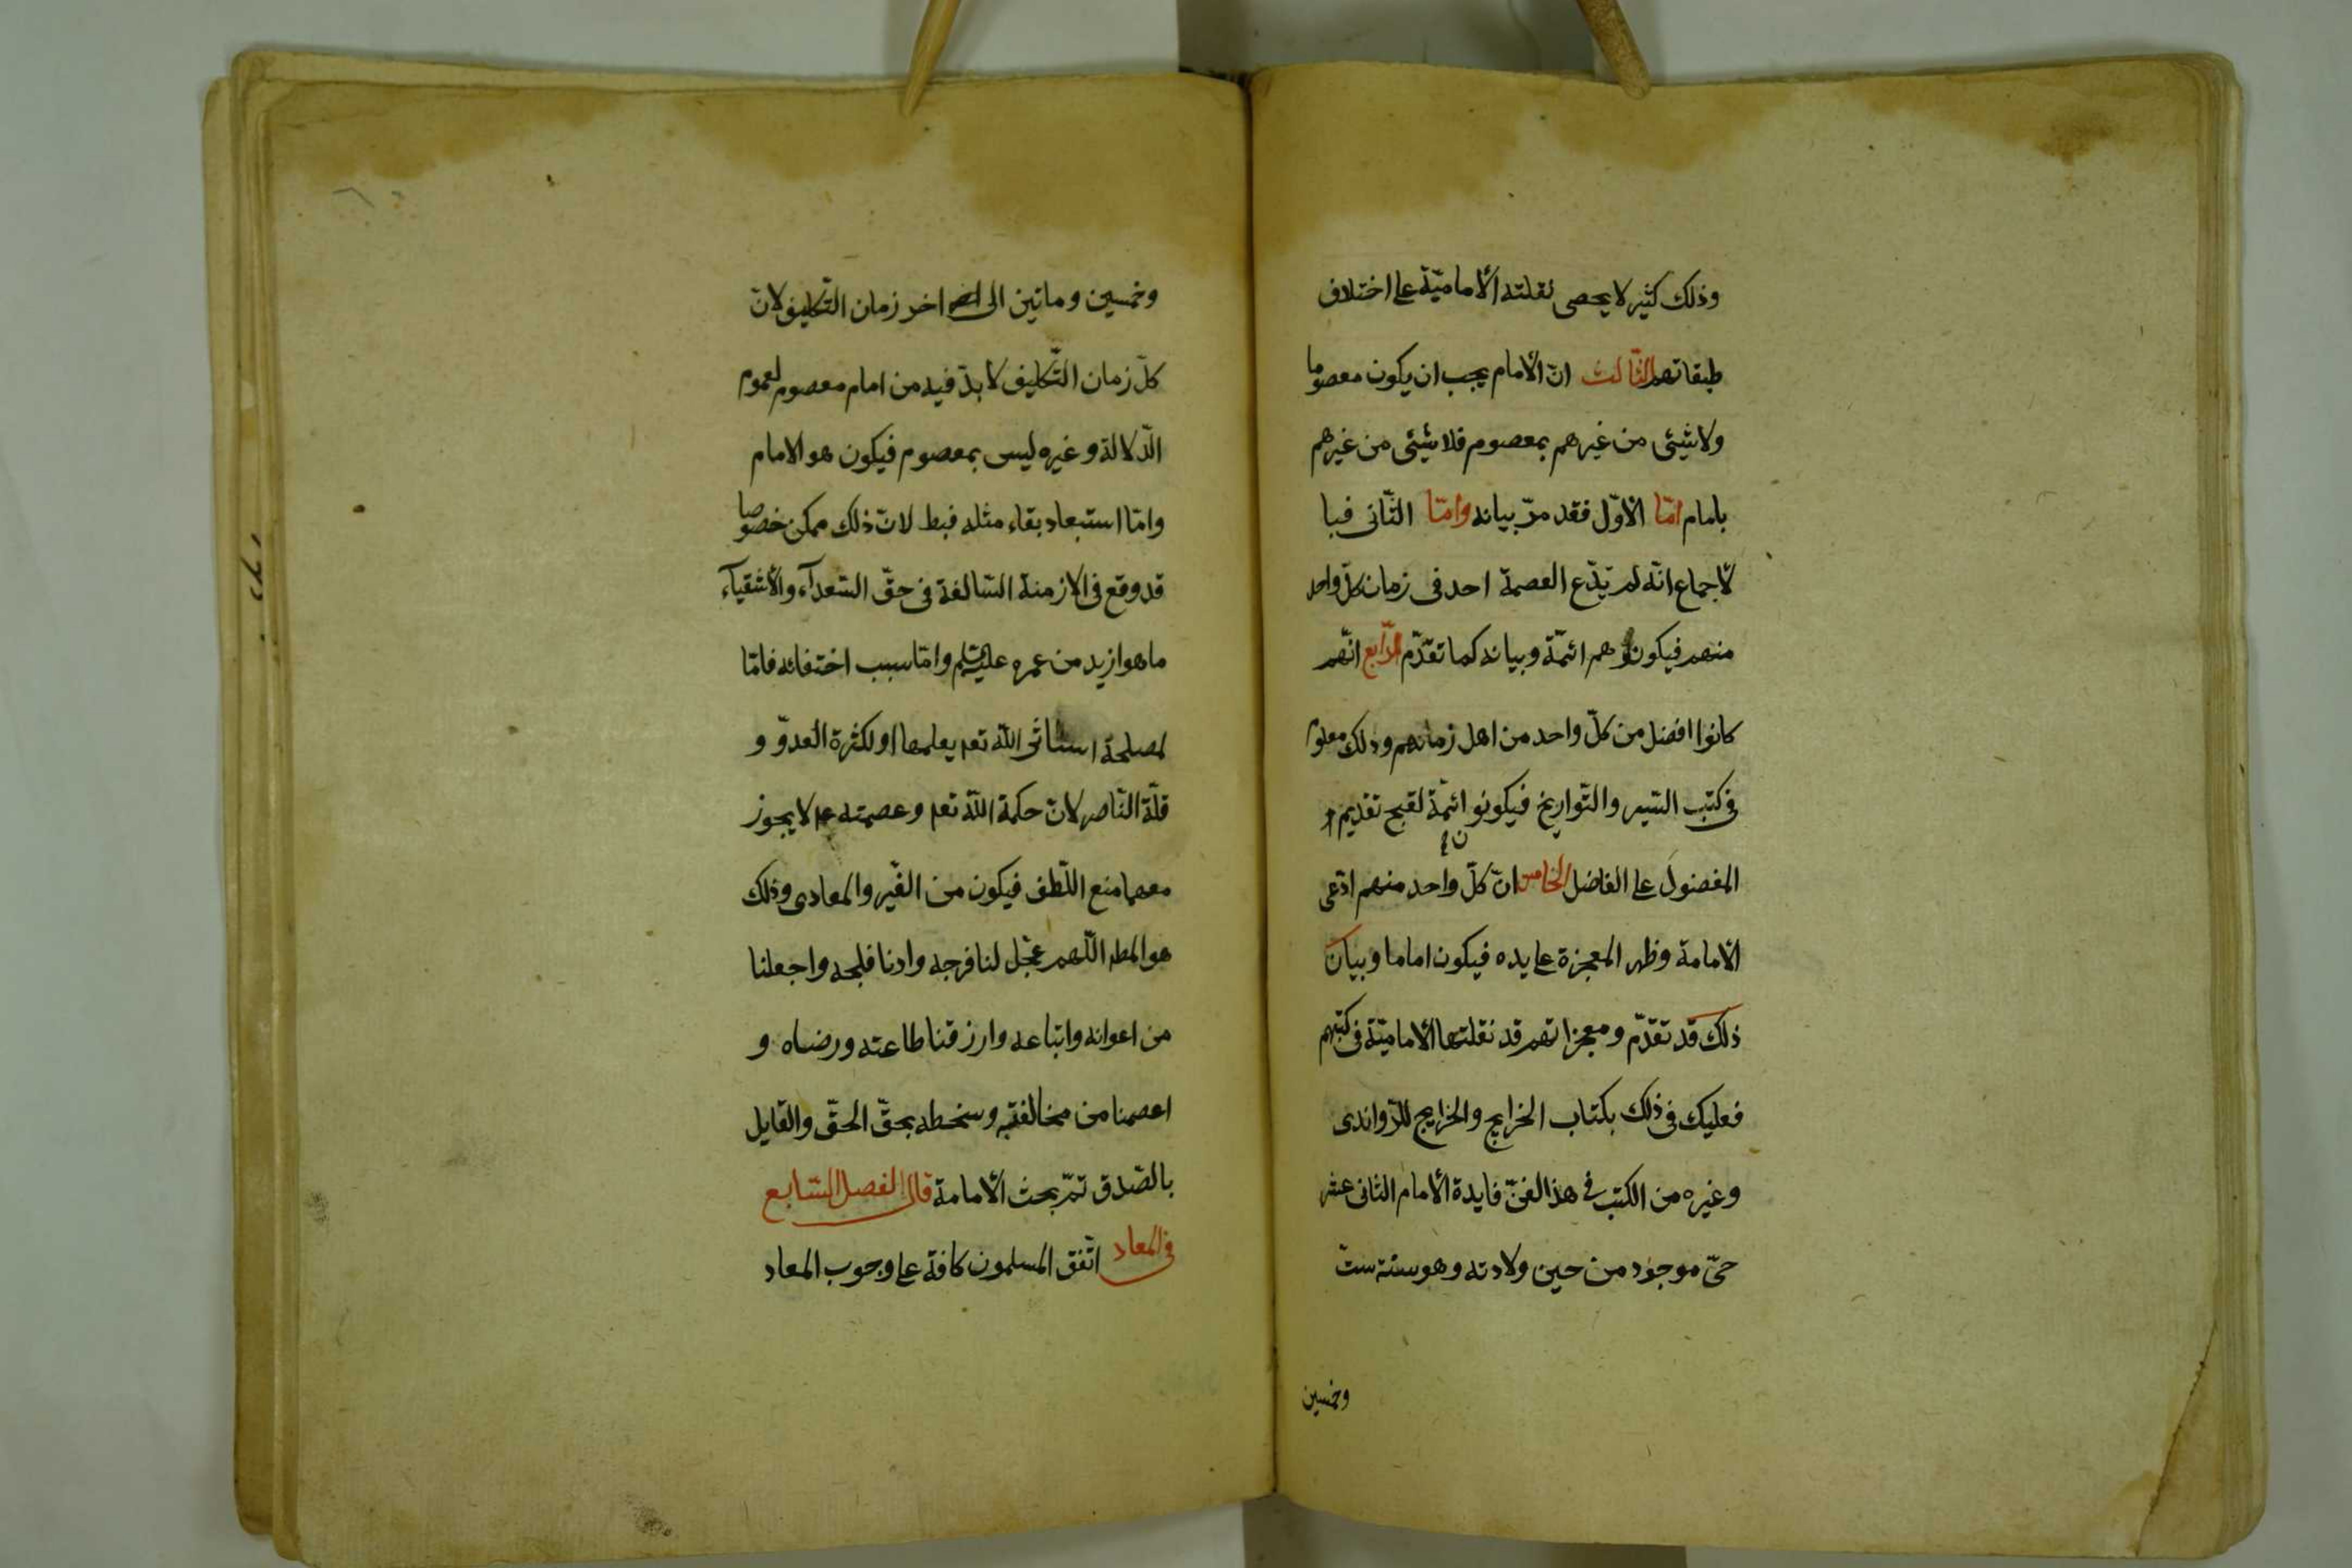 وذلك كثير لا يحصى نقلته الأماميّة على اختلاف
طبقاتهم الثّالث انّ الأمام يجب ان يكون معصوما
ولا شيئ من غيرهم بمعصوم فلا شيئ من غيرهم
بامام امّا الأوّل فقد مرّ بيانه وامّا الثّانى فبا
لأجماع انّه لم يدّع العصمة احد فى زمان كلّ واحد
منهم فيكونو هم ائمّة وبيانه كما تقدّم الرّابع انّهم
كانوا افضل من كلّ واحد من اهل زمانهم وذلك معلوم
فى كتب السّير والتّواريخ فيكونو ائمّة لقبح تقديم
المفضول على الفاضل الخامس انّ كلّ واحد منهم ادّعى
الأمامة وظهر المعجزة على يده فيكون اماما وبيان
ذلك قد تقدّم ومعجزاتهم قد نقلتها الأماميّة فى كتبهم
فعليك فى ذلك بكتاب الخرايج والخرايج للرّواندى
وغيره من الكتب فى هذا الفنّ فايدة الأمام الثانى عشر
حىّ موجود من حين ولادته وهو سنة ستّ
وخمسين
وخمسين وماتين الى اخر زمان التّكليف لانّ
كلّ زمان التّكليف لا بدّ فيه من امام معصوم لعموم
الدّلالة وغيره ليس بمعصوم فيكون هو الامام
وامّا استبعاد بقاء مثله فبط لانّ ذلك ممكن خصوصا
قد وقع فى الازمنة السّالفة فى حقّ السّعدآء والأشقيآء
ما هو ازيد من عمره عليه السّلم وامّا سبب اختفائه فامّا
لمصلحة استاثر الله تعم يعلمها او لكثرة العدوّ و
قلّة النّاصر لانّ حكمة اللّه تعم وعصمته عم لا يجوز
معهما منع اللّطف فيكون من الغير والمعادى وذلك
هو المطم اللّهم عجّل لنا فرجه وادنا فلجه واجعلنا
من اعوانه واتباعه وارزقنا طاعته ورضاه و
اعصمنا من مخالفته وسخطه بحقّ الحقّ والقايل
بالصّدق تمّ بحث الأمامة قال الفصل السّابع
فى المعاد اتّفق المسلمون كافة على وجوب المعاد